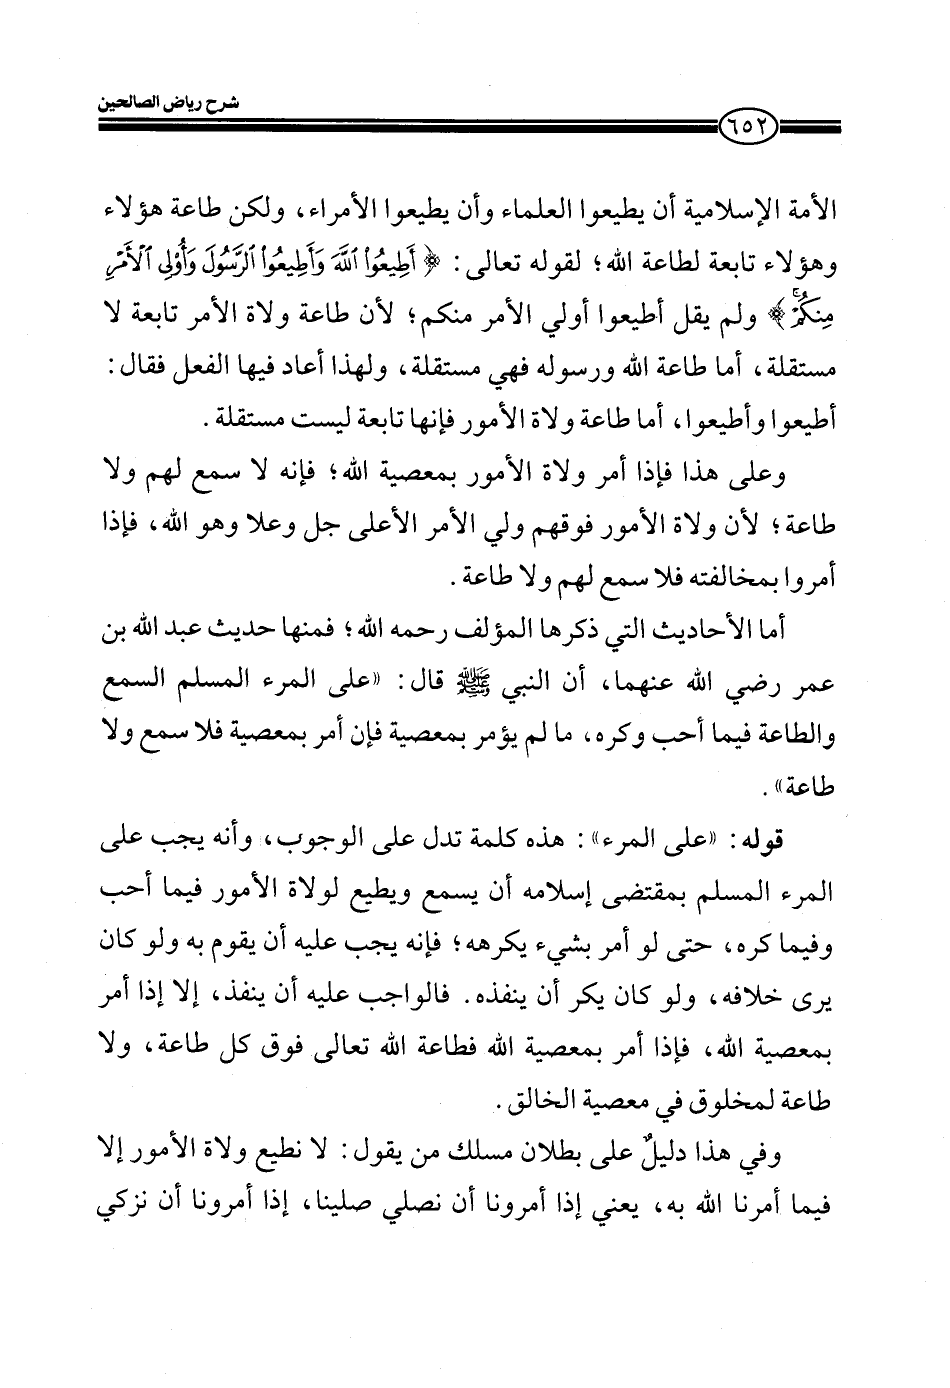 شرح رياض الصالحين
٦٥٢
الأمة الإسلامية أن يطيعوا العلماء وأن يطيعوا الأمراء، ولكن طاعة هؤلاء
وهؤلاء تابعة لطاعة الله؛ لقوله تعالى: ﴿ أَطِيعُوا۟ ٱللَّهَ وَأَطِيعُوا۟ ٱلرَّسُولَ وَأُو۟لِى ٱلْأَمْرِ
مِنكُمْ ﴾ ولم يقل أطيعوا أولي الأمر منكم؛ لأن طاعة ولاة الأمر تابعة لا
مستقلة، أما طاعة الله ورسوله فهي مستقلة، ولهذا أعاد فيها الفعل فقال:
أطيعوا وأطيعوا، أما طاعة ولاة الأمور فإنها تابعة ليست مستقلة.
وعلى هذا فإذا أمر ولاة الأمور بمعصية الله؛ فإنه لا سمع لهم ولا
طاعة؛ لأن ولاة الأمور فوقهم ولي الأمر الأعلى جل وعلا وهو الله، فإذا
أمروا بمخالفته فلا سمع لهم ولا طاعة.
أما الأحاديث التي ذكرها المؤلف رحمه الله؛ فمنها حديث عبد الله بن
عمر رضي الله عنهما، أن النبي ﷺ قال: «على المرء المسلم السمع
والطاعة فيما أحب وكره، ما لم يؤمر بمعصية فإن أمر بمعصية فلا سمع ولا
طاعة».
قوله: «على المرء»: هذه كلمة تدل على الوجوب، وأنه يجب على
المرء المسلم بمقتضى إسلامه أن يسمع ويطيع لولاة الأمور فيما أحب
وفيما كره، حتى لو أمر بشيء يكرهه؛ فإنه يجب عليه أن يقوم به ولو كان
يرى خلافه، ولو كان يكر أن ينفذه. فالواجب عليه أن ينفذ، إلا إذا أمر
بمعصية الله، فإذا أمر بمعصية الله فطاعة الله تعالى فوق كل طاعة، ولا
طاعة لمخلوق في معصية الخالق.
وفي هذا دليلٌ على بطلان مسلك من يقول: لا نطيع ولاة الأمور إلا
فيما أمرنا الله به، يعني إذا أمرونا أن نصلي صلينا، إذا أمرونا أن نزكي